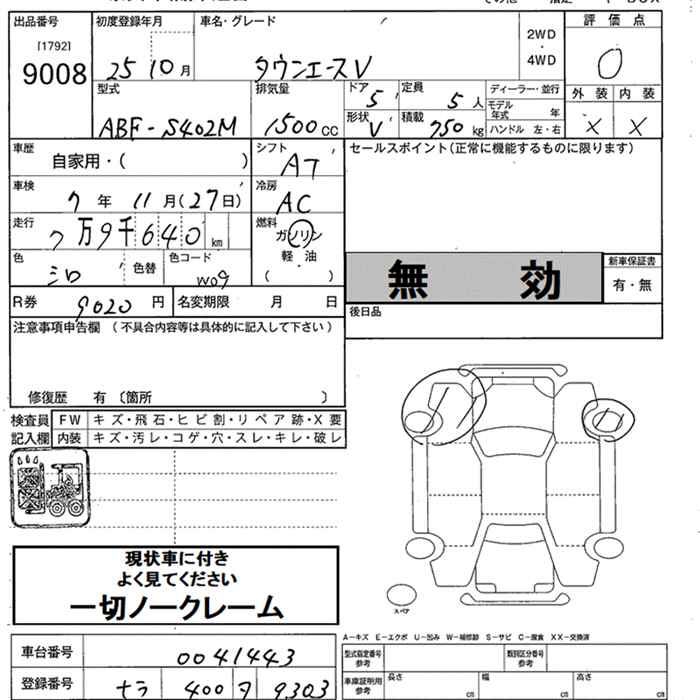 出品番号 初度登録年月 車名・グレード 評価点
[1792]
9008
25 10月 タウンエースV 2WD
・
4WD
型式 排気量 ドア 5 定員 5人 ディーラー・並行 外装 内装
ABF-S402M 1500cc 形状 V 積載 750kg モデル年式 年 X X
ハンドル 左・右
車歴 自家用・( ) シフト AT セールスポイント(正常に機能するものに限ります)
車検 7年11月(27日) 冷房 AC
走行 7万9千640km 燃料 ガソリン
軽油
( )
色 シロ 色替 色コード W09
無効 新車保証書
有・無
R券 9020円 名変期限 月 日 後日品
注意事項申告欄 (不具合内容等は具体的に記入して下さい)
修復歴 有〔箇所 〕
検査員 FW キズ・飛石・ヒビ割・リペア跡・X要
記入欄 内装 キズ・汚レ・コゲ・穴・スレ・キレ・破レ
現状車に付き
よく見てください
一切ノークレーム
スペア
A-キズ E-エクボ U-凹み W-補修跡 S-サビ C-腐食 XX-交換済
車台番号 0041443 型式指定番号 参考 類別区分番号 参考
登録番号 ナラ 400 タ 9303 車庫証明用 参考 長さ cm 幅 cm 高さ cm